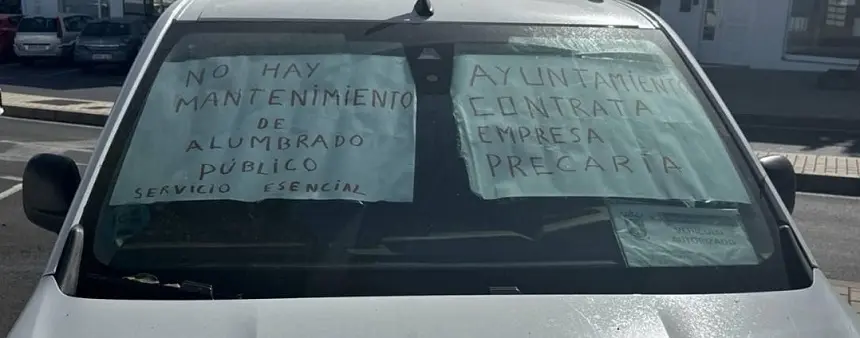 NO HAY
MANTENIMIENTO
DE
ALUMBRADO
PÚBLICO
SERVICIO ESENCIAL
AYUNTAMIENTO
CONTRATA
EMPRESA
PRECARIA
VEHÍCULO
AUTORIZADO